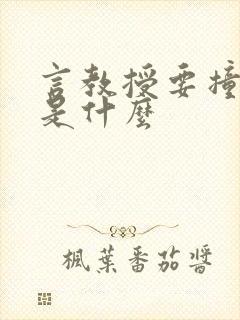 言教授要撞
是什麼
楓葉番茄醬